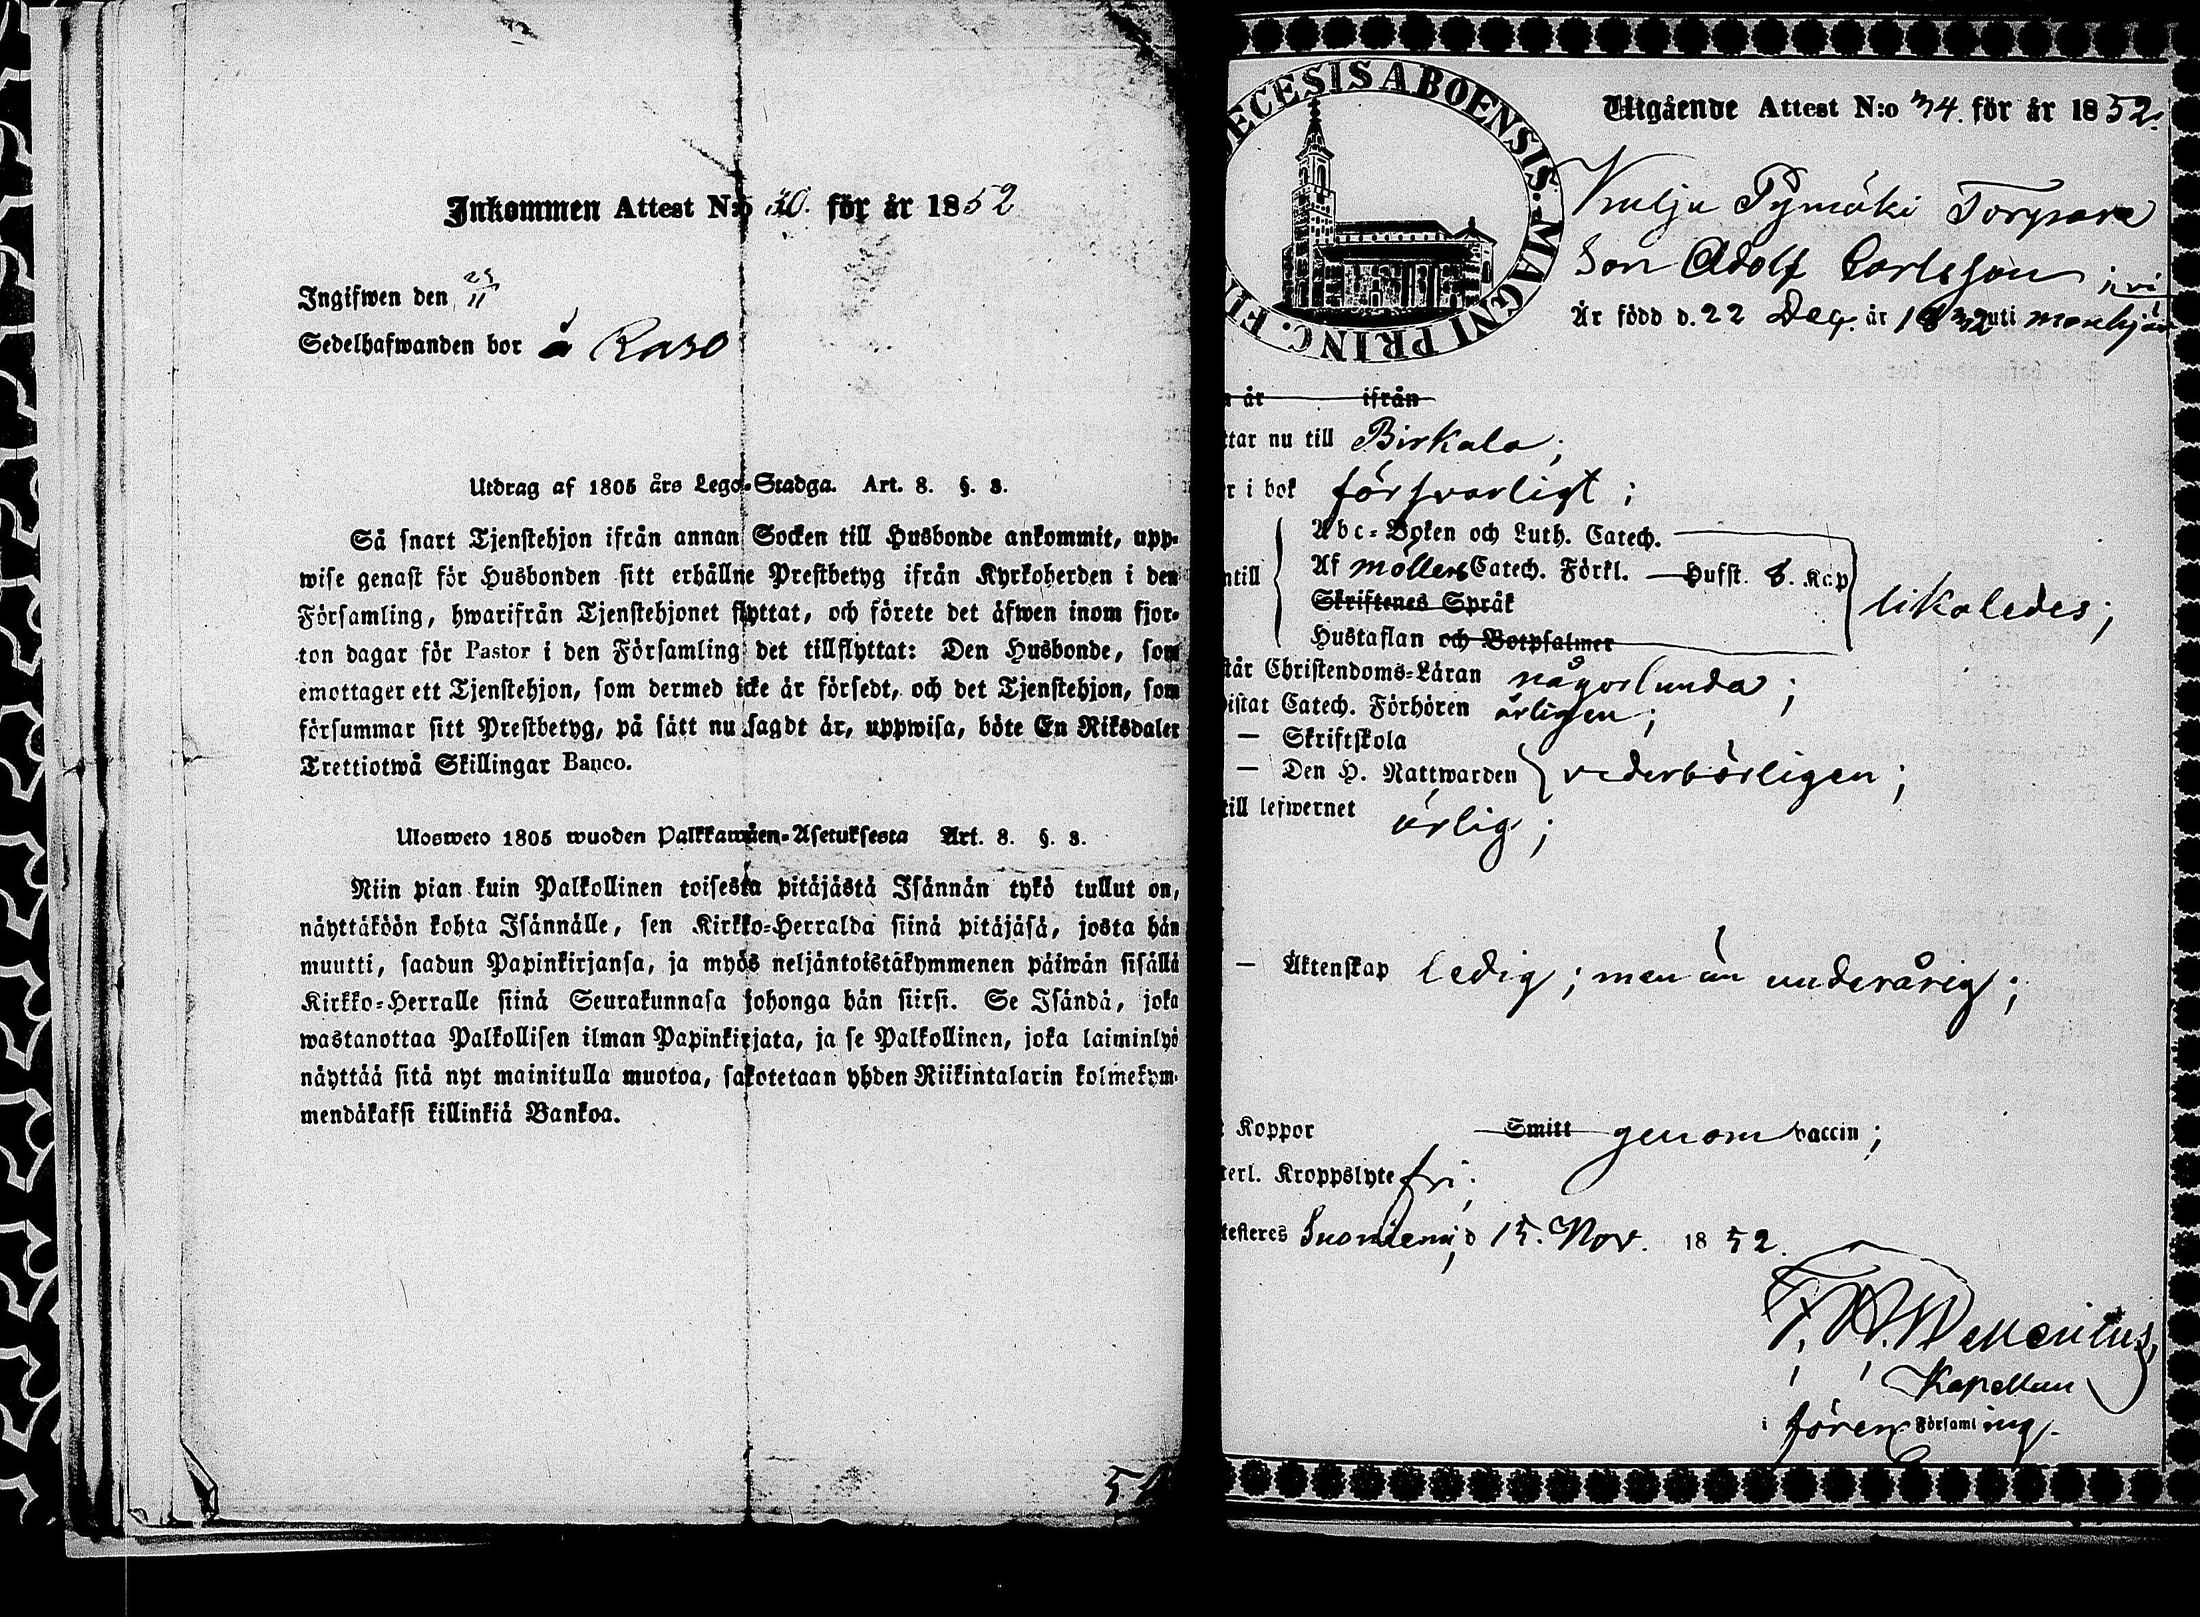 Inkommen Attest N:o 30. för år 1852
Ingifwen den 23/11
Sedelhafwanden bor å Raso
Utdrag af 1805 års Lego-Stadga. Art. 8. §. 3.
Så snart Tjenstehjon ifrån annan Socken till Husbonde ankommit, upp-
wise genast för Husbonden sitt erhållne Prestbetyg ifrån Kyrkoherden i den
Församling, hwarifrån Tjenstehjonet flyttat, och förete det äfwen inom fjor-
ton dagar för Pastor i den Församling det tillflyttat: Den Husbonde, som
emottager ett Tjenstehjon, som dermed icke är försedt, och det Tjenstehjon, som
försummar sitt Prestbetyg, på sätt nu sagdt är, uppwisa, böte En Riksdaler
Trettiotwå Skillingar Banco.
Ulosweto 1805 wuoden Palkkawäen-Asetuksesta Art. 8. §. 3.
Niin pian kuin Palkollinen toisesta pitäjästä Isännän tykö tullut on,
näyttäköön kohta Isännälle, sen Kirkko-Herralda siinä pitäjäsä, josta hän
muutti, saadun Papinkirjansa, ja myös neljäntoistäkymmenen päiwän sisällä
Kirkko-Herralle siinä Seurakunnasa johonga hän siirsi. Se Isändä, joka
wastanottaa Palkollisen ilman Papinkirjata, ja se Palkollinen, joka laiminlyö
näyttää sitä nyt mainitulla muotoa, sakotetaan yhden Riikintalarin kolmekym-
mendäkaksi killinkiä Bankoa.
ECESIS ABOENSIS. MAGNI PRINC. FI
Utgående Attest N:o 34. för år 1852.
Kulju Pymäki Torpare
Son Adolf Carlsson
Är född d. 22 Dec. år 1832 uti
n år ifrån
ttar nu till Birkala;
r i bok försvarligt;
ntill
Abc-Boken och Luth. Catech.
Af Möllers Catech. Förkl. Hufst. 8. Kap
Skriftenes Språk
Hustaflan och Botpsalmer
likaledes;
står Christendoms-Läran någorlunda;
istat Catech. Förhören årligen;
— Skriftskola
— Den H. Nattwarden vederbörligen;
till lefwernet ärlig;
— Äktenskap ledig; men än underårig;
t Koppor Smitt genom vaccin;
terl. Kroppslyte fri;
testeres Suoniemi d 15. Nov. 1852.
Kapellan
i fören. Församling.